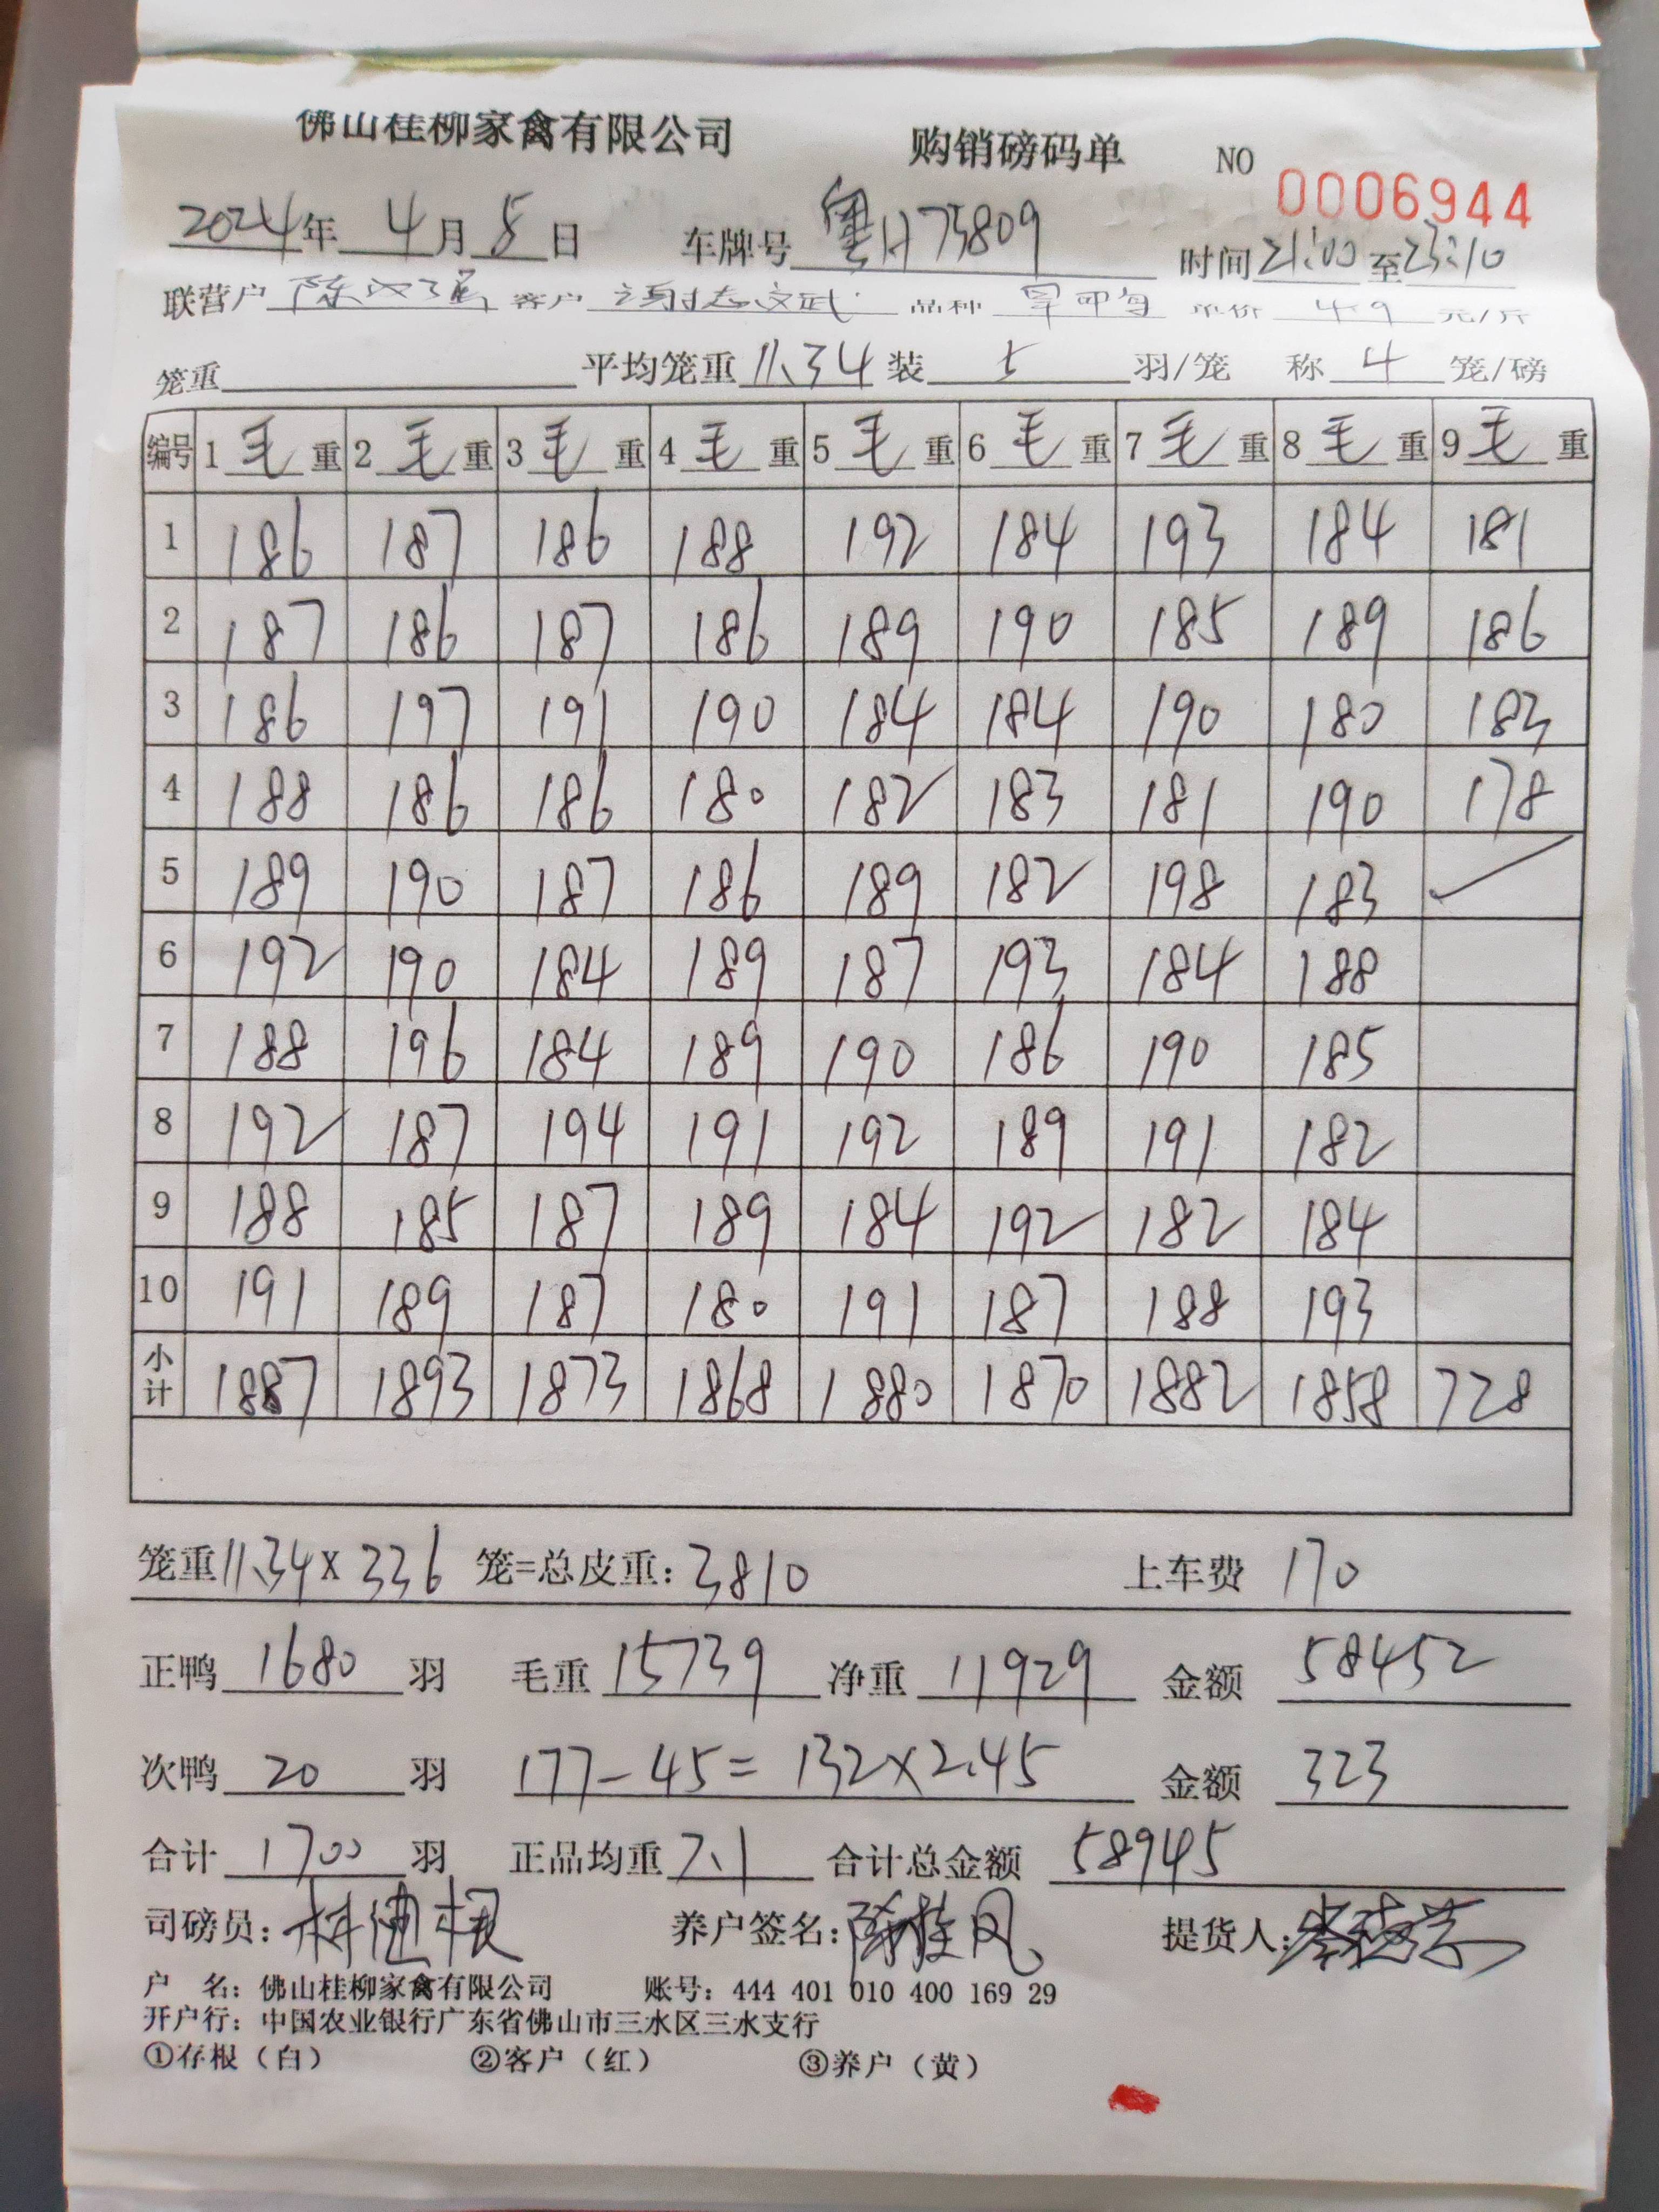 佛山桂柳家禽有限公司 购销磅码单 NO 0006944
2024年 4月 8日 车牌号 粤H73809 时间 21:00 至 23:10
联营户 陈 客户 谢志文武 品种 单价 4.9 元/斤
笼重 平均笼重 11.34 装 5 羽/笼 称 4 笼/磅
编号 1 毛 重 2 毛 重 3 毛 重 4 毛 重 5 毛 重 6 毛 重 7 毛 重 8 毛 重 9 毛 重
1 186 187 186 188 192 184 193 184 181
2 187 186 187 186 189 190 185 189 186
3 186 197 191 190 184 184 190 180 183
4 188 186 186 180 182 183 181 190 178
5 189 190 187 186 189 182 198 183
6 192 190 184 189 187 193 184 188
7 188 196 184 189 190 186 190 185
8 192 187 194 191 192 189 191 182
9 188 185 187 189 184 192 182 184
10 191 189 187 180 191 187 188 193
小计 1887 1893 1873 1868 1880 1870 1882 1858 728
笼重 11.34 x 336 笼=总皮重: 3810 上车费 170
正鸭 1680 羽 毛重 15739 净重 11929 金额 58452
次鸭 20 羽 177-45=132×2.45 金额 323
合计 1700 羽 正品均重 7.1 合计总金额 58945
司磅员: 养户签名: 陈桂凤 提货人:
户 名: 佛山桂柳家禽有限公司 账号: 444 401 010 400 169 29
开户行: 中国农业银行广东省佛山市三水区三水支行
①存根（白） ②客户（红） ③养户（黄）